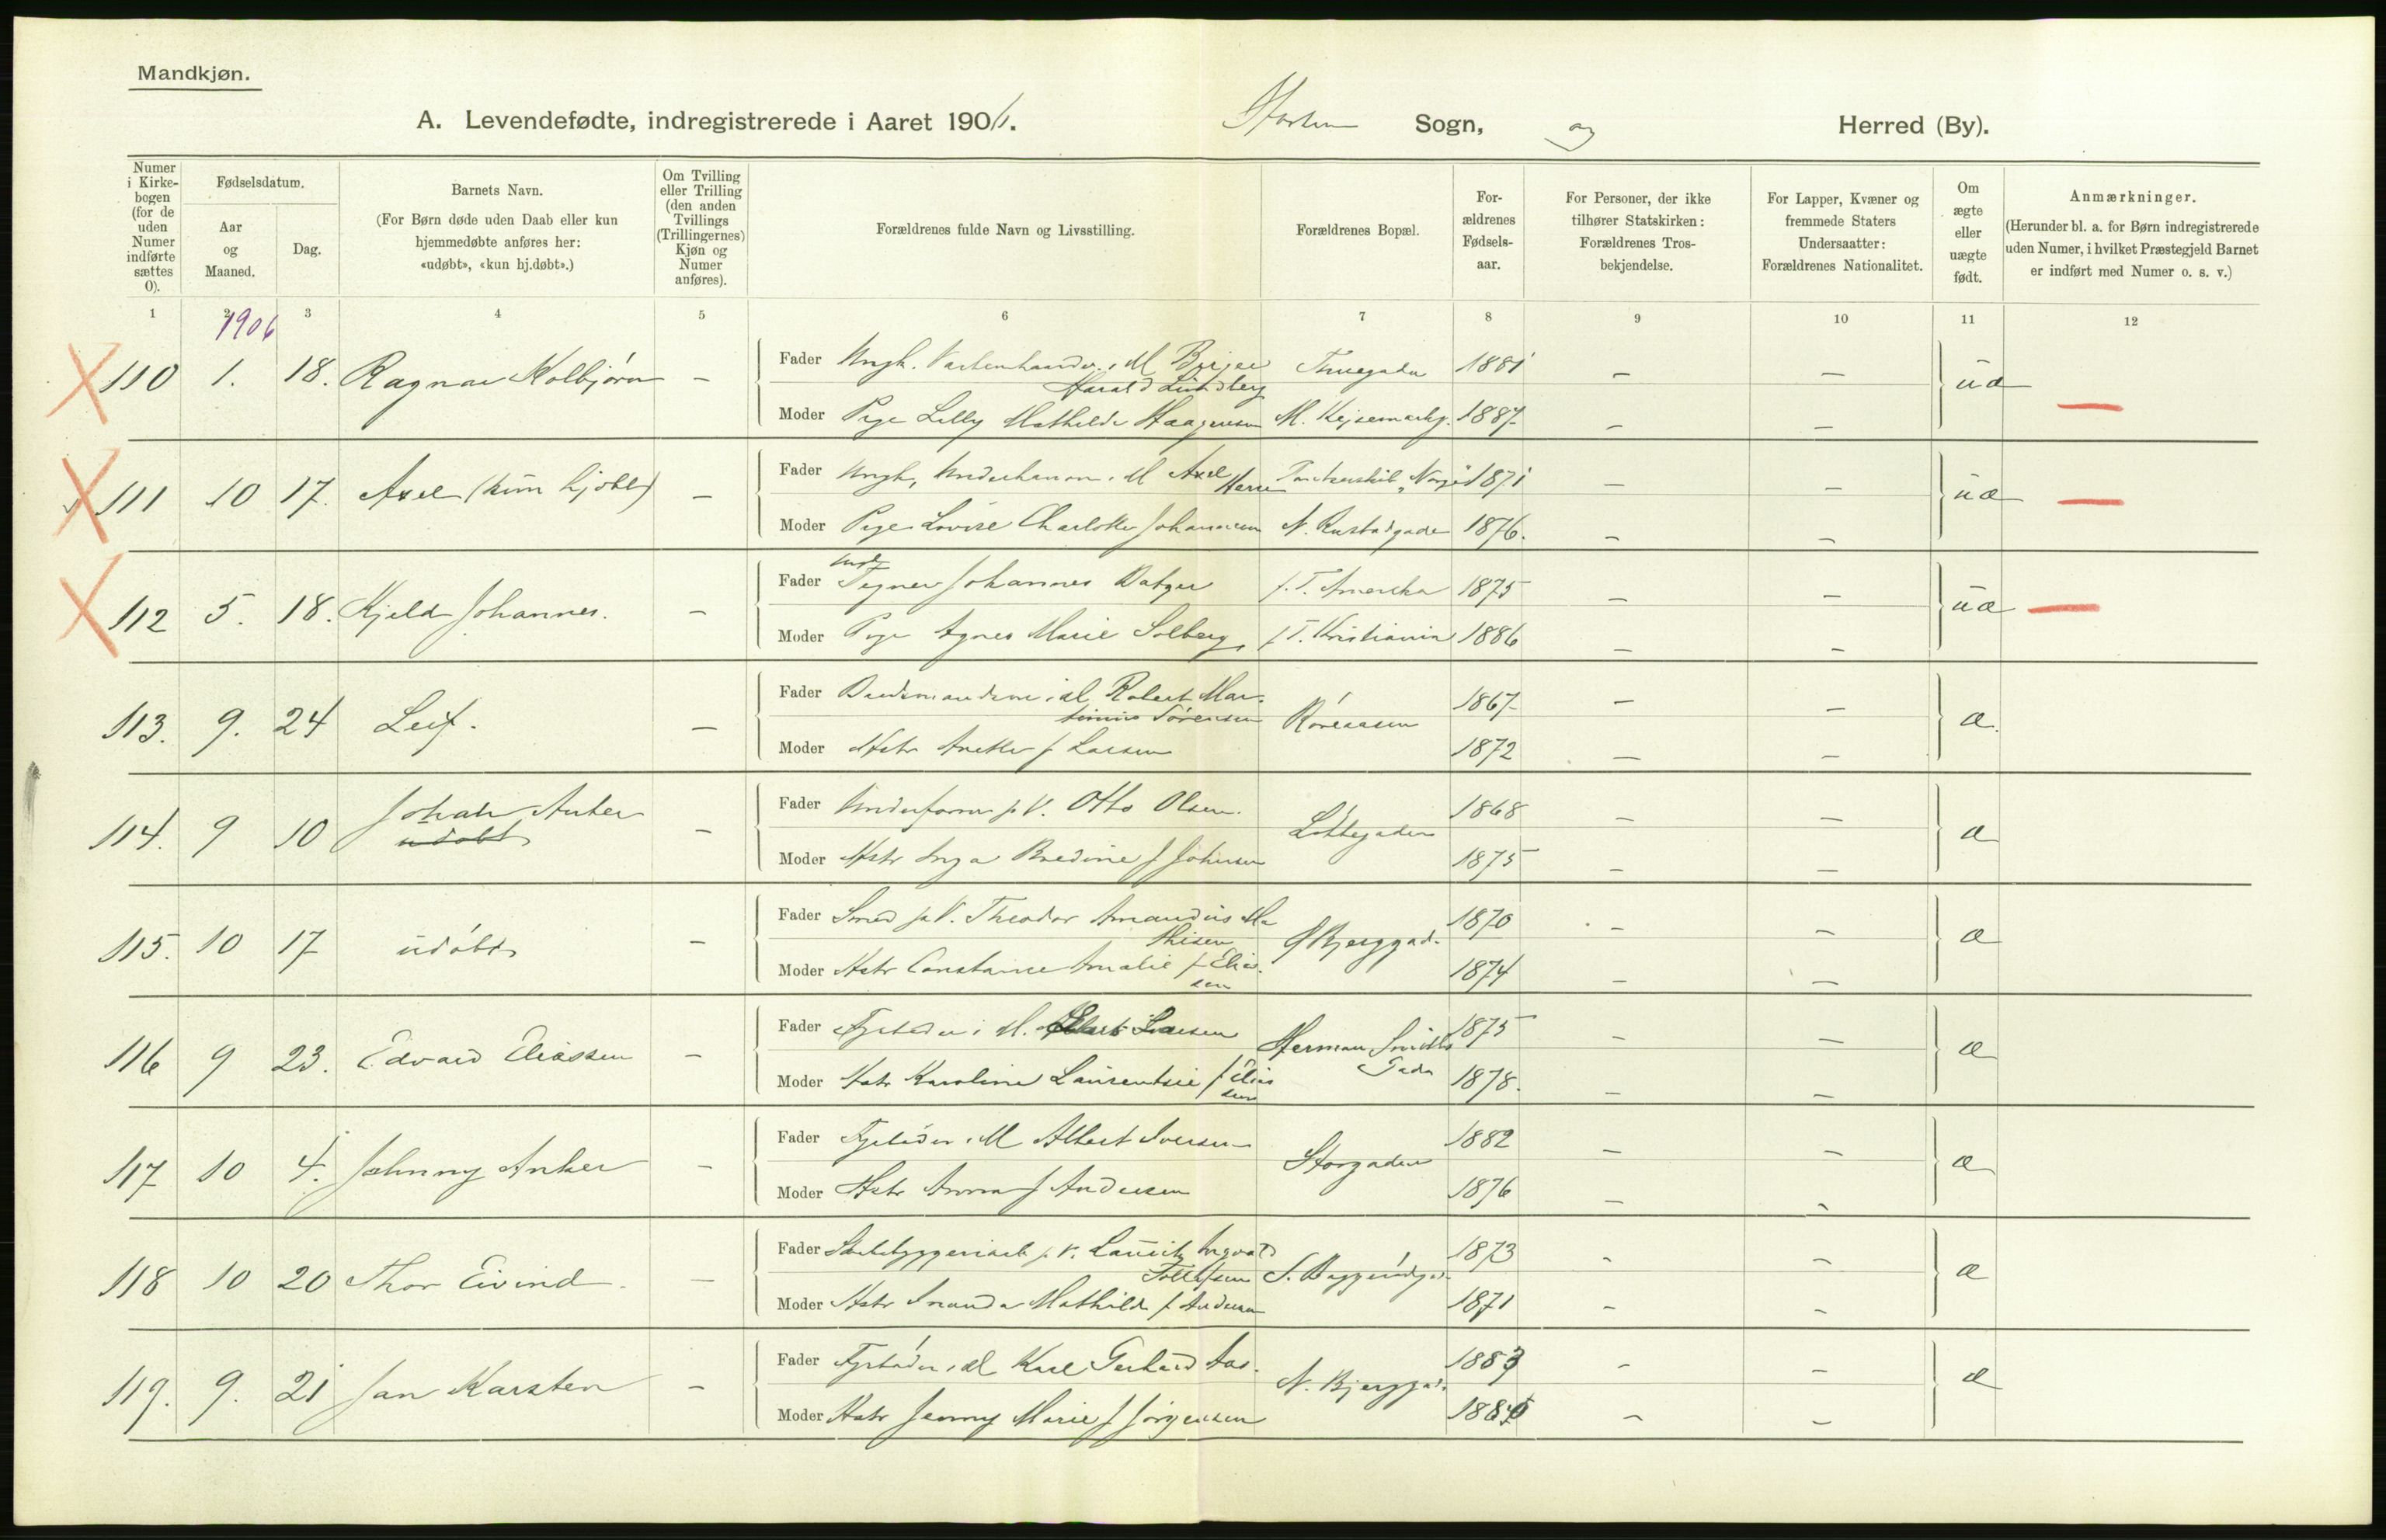 Mandkjøn.
A. Levendefødte, indregistrerede i Aaret 1906. Horten Sogn, og Herred (By).
Numer i Kirkebogen (for de uden Numer indførte sættes 0).
Fødselsdatum.
Aar og Maaned.
Dag.
Barnets Navn.
(For Børn døde uden Daab eller kun hjemmedøbte anføres her: «udøbt», «kun hj.døbt».)
Om Tvilling eller Trilling (den anden Tvillings (Trillingernes) Kjøn og Numer anføres).
Forældrenes fulde Navn og Livsstilling.
Forældrenes Bopæl.
Forældrenes Fødselsaar.
For Personer, der ikke tilhører Statskirken: Forældrenes Trosbekjendelse.
For Lapper, Kvæner og fremmede Staters Undersaatter: Forældrenes Nationalitet.
Om ægte eller uægte født.
Anmærkninger.
(Herunder bl. a. for Børn indregistrerede uden Numer, i hvilket Præstegjeld Barnet er indført med Numer o. s. v.)
1 2 3 4 5 6 7 8 9 10 11 12
1906
110 1. 18. Ragnar Kolbjørn - Fader Ungk. i M Birger Harald Lundberg Thuegaden 1881 - - uæ
Moder Pige Lilly Mathilde Haagensen 1887 - -
111 10 17. Axel (kun hjdbt) - Fader Ungk. i M Axel "Norge" 1871 - - uæ
Moder Pige Lovise Charlotte Johannesen N. Rustadgade 1876. - -
112 5. 18. Kjeld Johannes. - Fader Tegner Johannes f. T. Amerika 1875 - - uæ
Moder Pige Agnes Marie Solberg, f. T. Kristiania 1886 - -
113. 9. 24 Leif. - Fader i M Robert Martinius Sørensen Røreaasen 1867 - - æ.
Moder Hstr Anette f Larsen 1872 - -
114. 9 10 Johan Anker udøbt - Fader p V. Otto Olsen. Løkkegaden 1868 - - æ
Moder Hstr Inga Bredine f Johnsen 1875 - -
115. 10 17 udøbt - Fader Smed p V. Theodor Amandus Mathisen Ø Bjerggad. 1870 - - æ
Moder Hstr Constance Amalie f Eliassen 1874 - -
116 9 23. Edvard Eliassen - Fader Fyrbøder i M. Larsen Herman Smiths Gade 1875 - - æ
Moder Hstr Karoline Laurentsie f Eliassen 1878. - -
117 10 4. Johnny Anker - Fader Fyrbøder i M Albert Iversen Storgaden 1882 - - æ
Moder Hstr Anna f Andersen 1876 - -
118 10 20 Thor Eivind. - Fader Skibsbyggeriarb p. V. Lauritz Ingvald Tollefsen 1873 - - æ
Moder Hstr Mathilde f Andersen 1871 - -
119. 9. 21 Jan Karsten - Fader Fyrbøder i M Karl Gerhard Aas. N. Bjerggad. 1883 - - æ
Moder Hstr Jenny Marie f Jørgensen - -